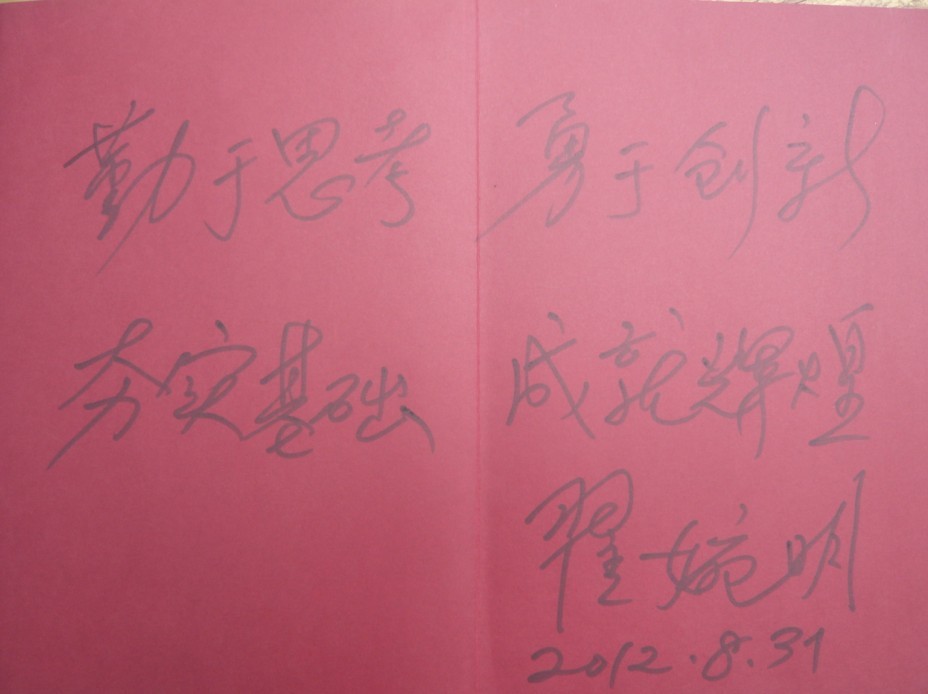 勤于思考 勇于创新
夯实基础 成就辉煌
翟婉明
2012.8.31